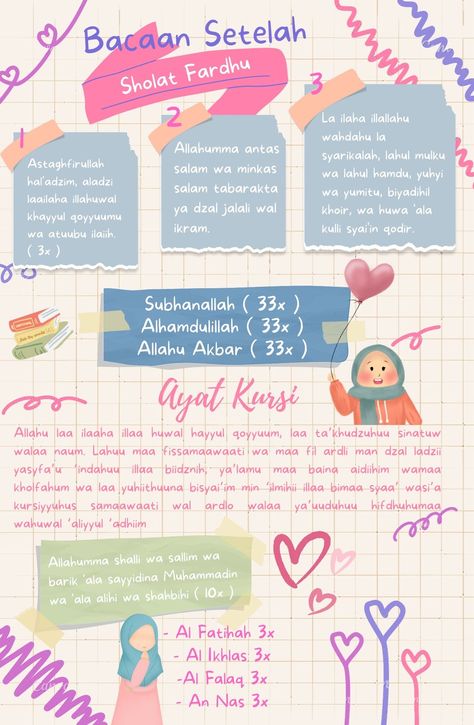 Bacaan Setelah
Sholat Fardhu
1
Astaghfirullah
hal'adzim, aladzi
laailaha illahuwal
khayyul qoyyuumu
wa atuubu ilaiih.
( 3x )
2
Allahumma antas
salam wa minkas
salam tabarakta
ya dzal jalali wal
ikram.
3
La ilaha illallahu
wahdahu la
syarikalah, lahul mulku
wa lahul hamdu, yuhyi
wa yumitu, biyadihil
khoir, wa huwa 'ala
kulli syai'in qodir.
Subhanallah ( 33x )
Alhamdulillah ( 33x )
Allahu Akbar ( 33x )
Ayat Kursi
Allahu laa ilaaha illaa huwal hayyul qoyyuum, laa ta'khudzuhuu sinatuw
walaa naum. Lahuu maa fissamaawaati wa maa fil ardli man dzal ladzii
yasyfa'u 'indahuu illaa biidznih, ya'lamu maa baina aidiihim wamaa
kholfahum wa laa yuhiithuuna bisyai'im min 'ilmihii illaa bimaa syaa' wasi'a
kursiyyuhus samaawaati wal ardlo walaa ya'uuduhuu hifdhuhumaa
wahuwal 'aliyyul 'adhiim
Allahumma shalli wa sallim wa
barik 'ala sayyidina Muhammadin
wa 'ala alihi wa shahbihi ( 10x )
- Al Fatihah 3x
- Al Ikhlas 3x
-Al Falaq 3x
- An Nas 3x